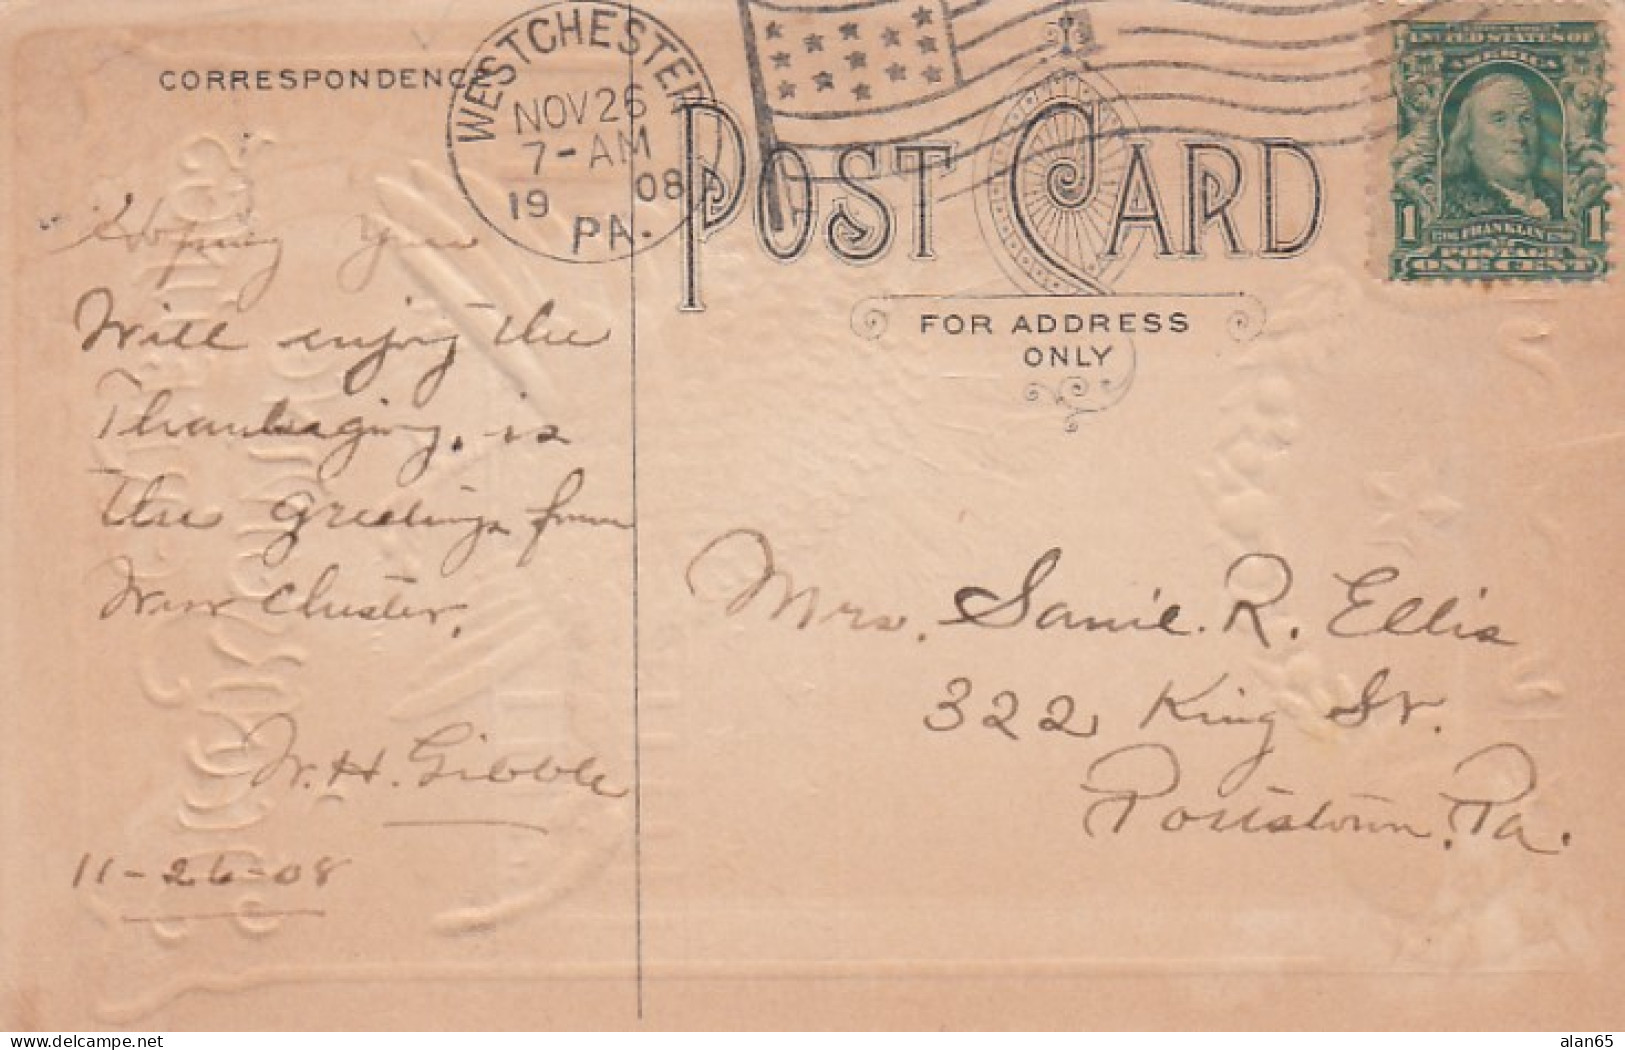 CORRESPONDENCE
WESTCHESTER
NOV 26
7-AM
1908
PA.
POST CARD
FOR ADDRESS
ONLY
UNITED STATES OF
AMERICA
1 FRANKLIN 1
POSTAGE
ONE CENT
Hoping you
Will enjoy the
Thanksgiving. is
the greetings from
West Chester.
W. H. Gibble
11-26-08
Mrs. Sanie. R. Ellis
322 King St.
Pottstown. Pa.
delcampe.net
alan65